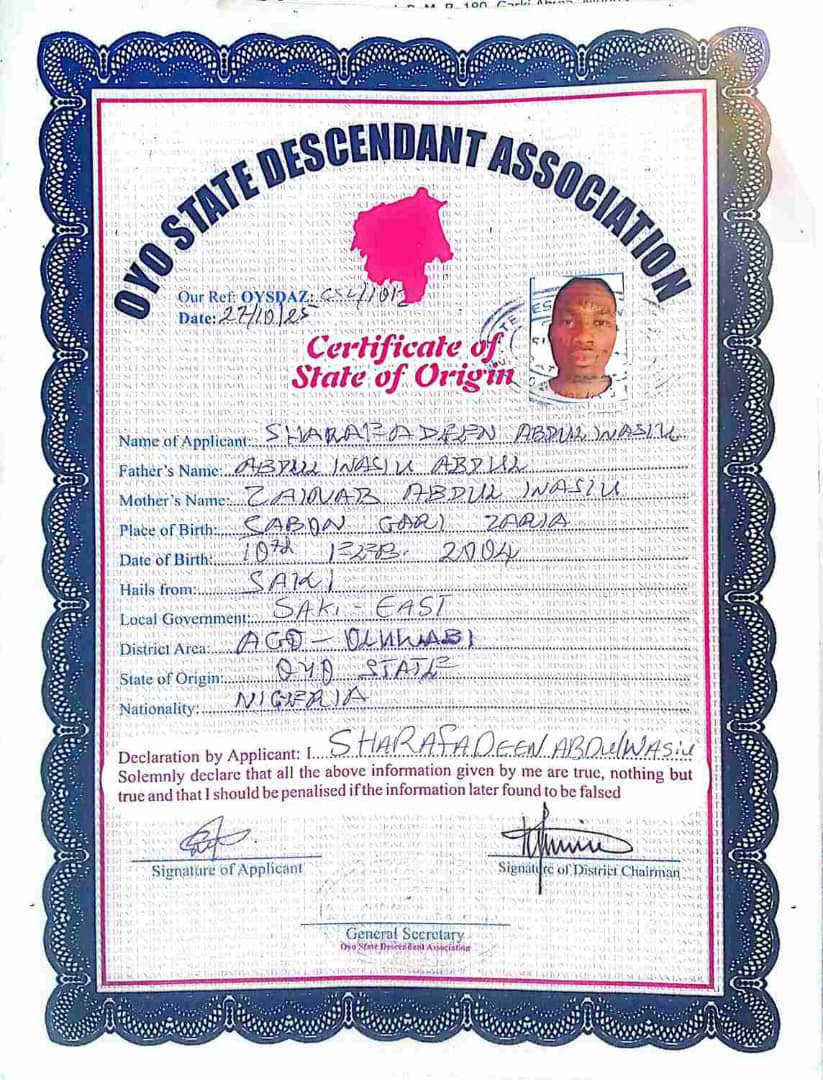 OYO STATE DESCENDANT ASSOCIATION
Our Ref: OYSDAZ:
Date: 27/10/25
Certificate of
State of Origin
Name of Applicant: SHARAFADEEN ABDULWASIU
Father's Name: ABDUL WASIU ABDUL
Mother's Name: ZAINAB ABDUL WASIU
Place of Birth: SABON GARI ZARIA
Date of Birth: 10th FEB. 2004
Hails from: SAKI
Local Government: SAKI - EAST
District Area: AGO -
State of Origin: OYO STATE
Nationality: NIGERIA
Declaration by Applicant: I SHARAFADEEN ABDULWASIU
Solemnly declare that all the above information given by me are true, nothing but
true and that I should be penalised if the information later found to be falsed
Signature of Applicant
Signature of District Chairman
General Secretary
Oyo State Descendant Association